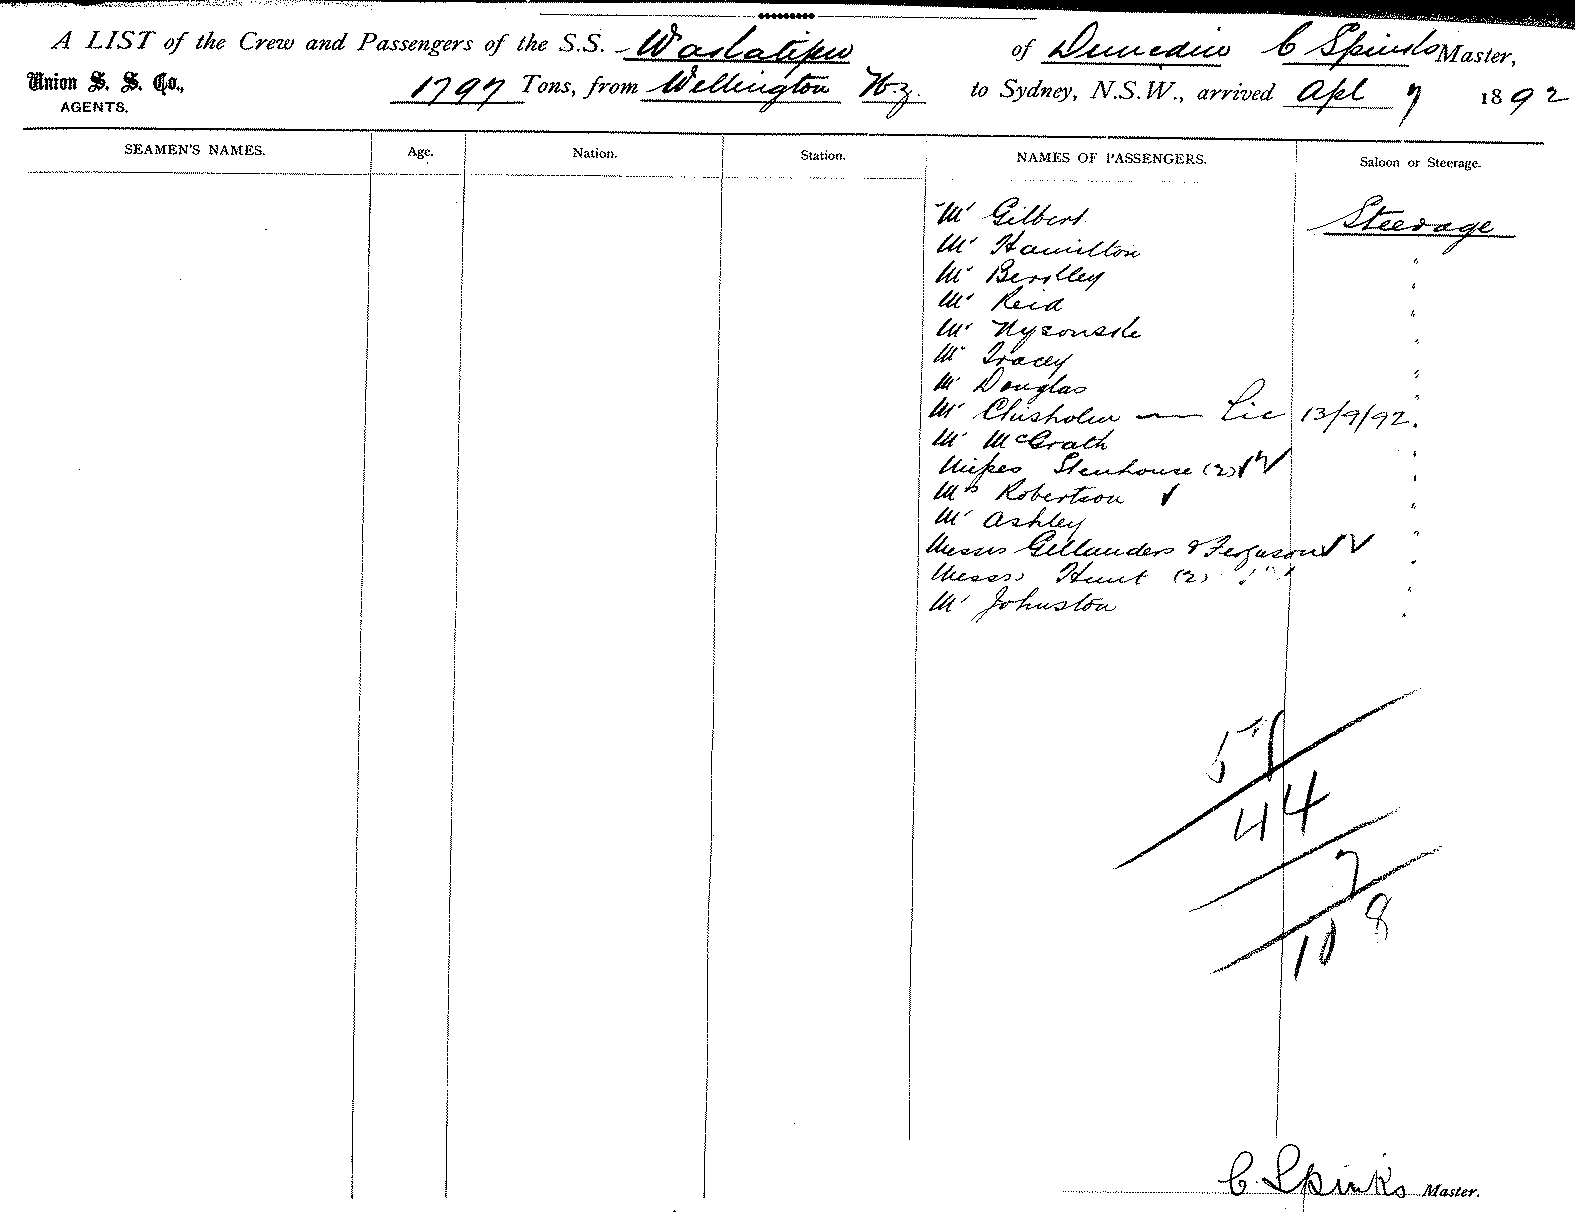 A LIST of the Crew and Passengers of the S.S. Wakatipu of Dunedin C Spinks Master,
Union S. S. Co., AGENTS.
1797 Tons, from Wellington N.z. to Sydney, N.S.W., arrived Apl 7 1892
SEAMEN'S NAMES. Age. Nation. Station. NAMES OF PASSENGERS. Saloon or Steerage.
Mr Gilbert Steerage
Mr Hamilton "
Mr "
Mr Reid "
Mr "
Mr Tracey "
Mr Douglas "
Mr Chisholm — Lic 13/9/92.
Mr McGrath "
Misses Stenhouse (2) "
Mrs Robertson "
Mr Ashley "
Messrs Gillanders & Ferguson "
Messrs Hunt (2) "
Mr Johnston "
57
44
7
108
C. Spinks Master.